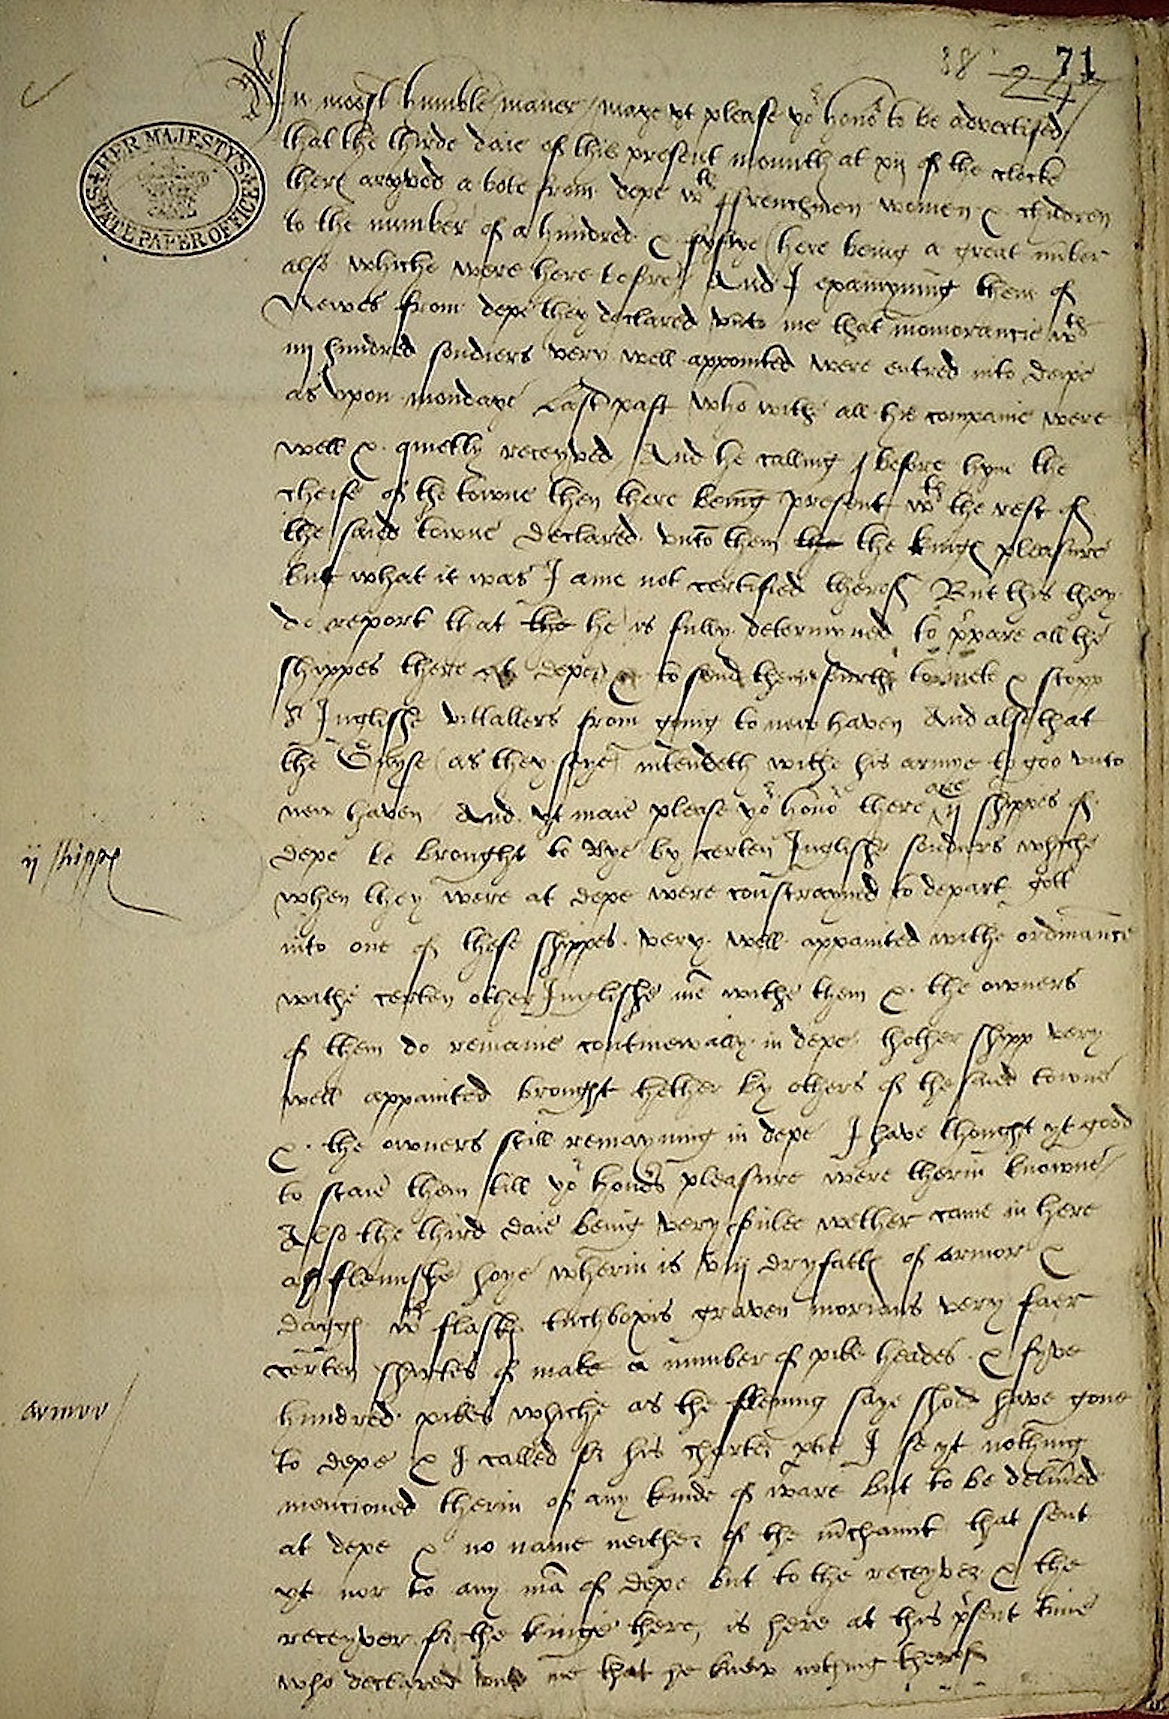 38 247
71
HER MAJESTY'S
STATE PAPER OFFICE
In moost humble maner maye yt please yor honor to be advertised
that the thirde daie of this present mounth at xij of the clocke
there aryved a bote from depe wth ffrenchmen women & children
to the number of a hundred & fyftye (here being a great nūber
also whiche were here before) And I examynīng them of
Newes from depe they declared unto me that momorancie wth
iiij hundred souldiers very well appointed were entred into deipe
as upon mondaye Last past who withe all his companie were
well & quietly receyved And he calling before hym the
cheife of the towne then there being present wth the rest of
the saied towne declared unto them the the kinges pleasure
but what it was I ame not certified therof But this they
do report that the he is fully determyned to ppare all the
shippes there at depe & to send them fourthe to mete & stopp
Inglishe vittallers from going to new haven And also that
the Gwyse (as they saye) intendeth withe his armye to goo unto
new haven And yt maie please yor honor there are ij shippes of
depe be brought to Rye by certen Inglishe soudiers whiche
ij shippes
when they were at depe were constraynid to depart gott
into one of these shippes very well appointed withe ordinance
withe certen other Inglishe mē withe them & the owners
of them do remaine contynewally in depe thother shipp very
well appainted brought hether by others of the saied towne
& the owners still remayning in depe I have thought yt good
to staie them till yor honors pleasure were therin knowne
Also the third daie being very fule wether came in here
a flemishe hoye wherin is viij dryfattes of armor &
dagges wth flaskes tuchboxis graven morians very faer
certen shirtes of male a number of pike heades & fyve
armor
hundred pikes whiche as the fleming saye shold have gone
to depe & I called for his charter ptie I se yt nothing
mencioned therin of any kinde of ware but to be delived
at depe & no name neither of the mchaunt that sent
yt nor to any mā of depe but to the receyver & the
receyver for the kinge there, is here at this psent time
who declared unto me that he knew nothing therof